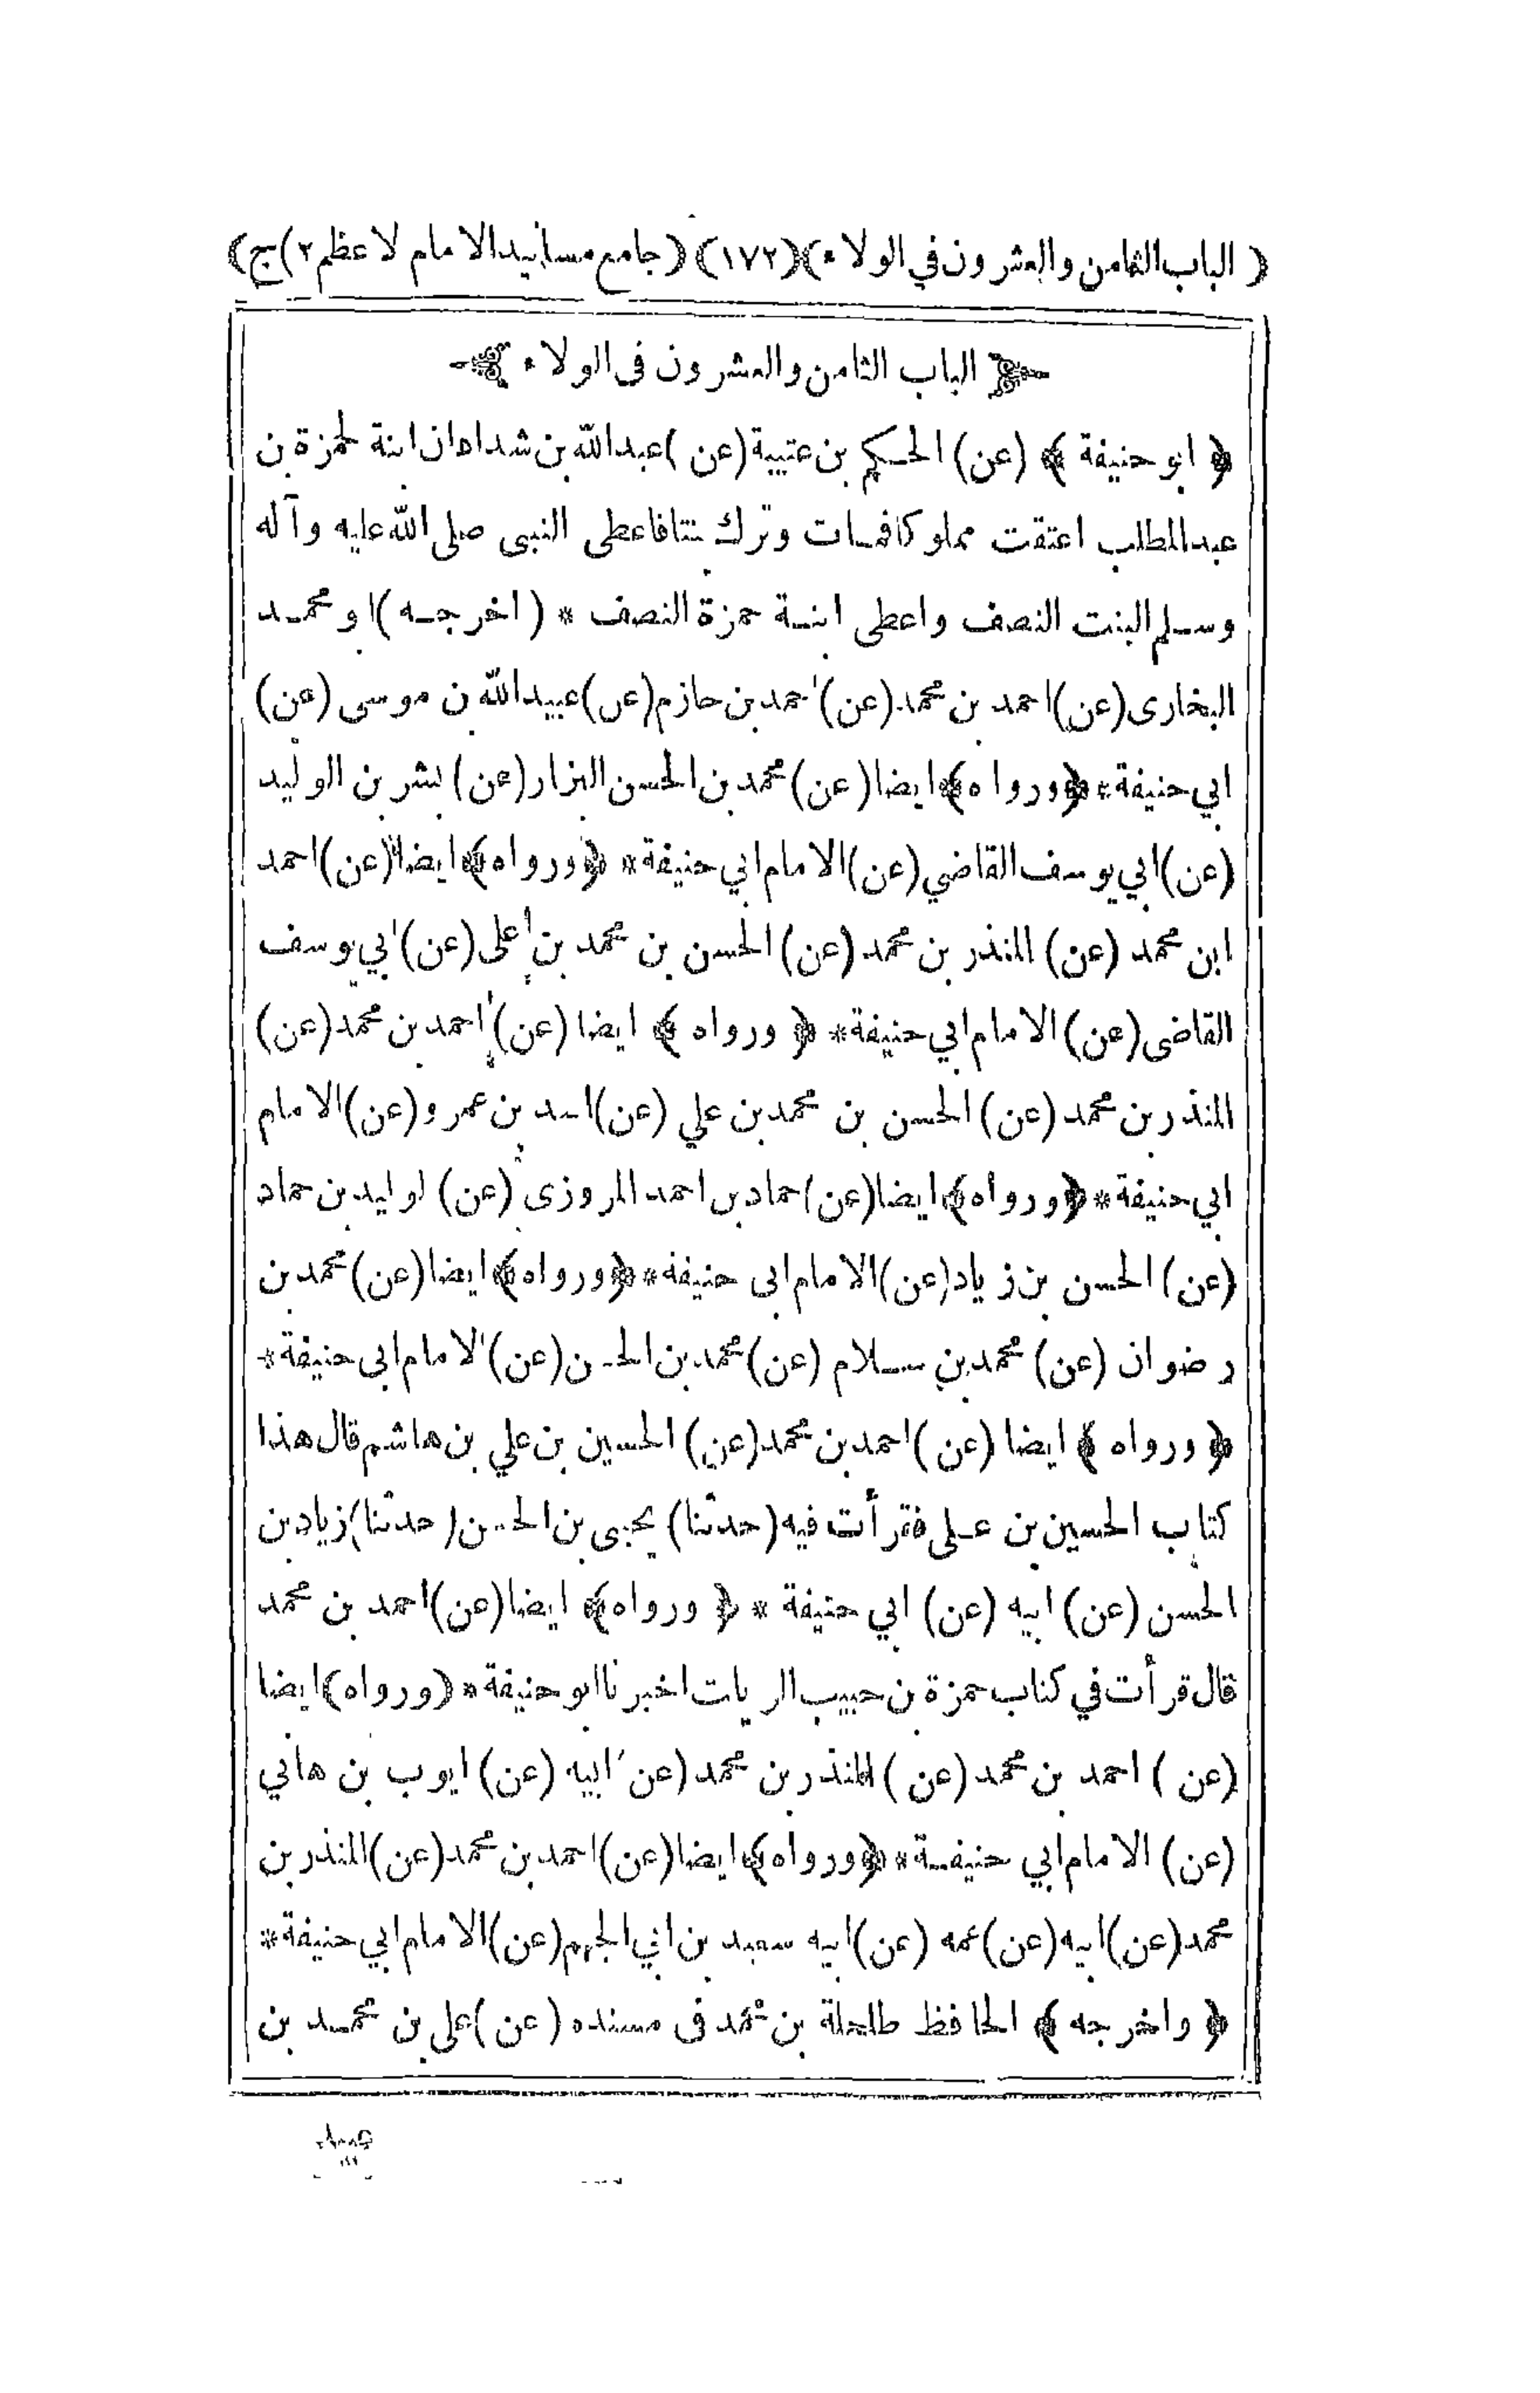 ( الباب الثامن والعشرون في الولاء ) (١٧٢) ( جامع مسانيد الامام لاعظم ٢ ) ج)
الباب الثامن والعشرون فى الولاء
﴿ ابو حنيفة ﴾ (عن) الحكم بن عتيبة (عن) عبدالله بن شداد ان ابنة لحمزة بن
عبدالمطلب اعتقت مملوكا فمات وترك بنتا فاعطى النبى صلى الله عليه وآله
وسلم البنت النصف واعطى ابنة حمزة النصف * (اخرجه) ابو محمد
البخارى (عن) احمد بن محمد (عن) احمد بن حازم (عن) عبيدالله بن موسى (عن)
ابي حنيفة * ﴿ورواه﴾ ايضا (عن) محمد بن الحسن البزار (عن) بشر بن الوليد
(عن) ابي يوسف القاضي (عن) الامام ابي حنيفة * ﴿ورواه﴾ ايضا (عن) احمد
ابن محمد (عن) المنذر بن محمد (عن) الحسن بن محمد بن على (عن) ابي يوسف
القاضى (عن) الامام ابي حنيفة * ﴿ ورواه ﴾ ايضا (عن) احمد بن محمد (عن)
المنذر بن محمد (عن) الحسن بن محمد بن علي (عن) اسد بن عمرو (عن) الامام
ابي حنيفة * ﴿ورواه﴾ ايضا (عن) حماد بن احمد المروزى (عن) لوليد بن حماد
(عن) الحسن بن زياد (عن) الامام ابى حنيفة * ﴿ورواه﴾ ايضا (عن) محمد بن
رضوان (عن) محمد بن سلام (عن) محمد بن الحسن (عن) الامام ابى حنيفة *
﴿ ورواه ﴾ ايضا (عن) احمد بن محمد (عن) الحسين بن علي بن هاشم قال هذا
كتاب الحسين بن على فقرأت فيه (حدثنا) يحيى بن الحسن (حدثنا) زياد بن
الحسن (عن) ابيه (عن) ابي حنيفة * ﴿ ورواه ﴾ ايضا (عن) احمد بن محمد
قال قرأت في كتاب حمزة بن حبيب الزيات اخبرنا ابو حنيفة * (ورواه) ايضا
(عن) احمد بن محمد (عن) المنذر بن محمد (عن) ابيه (عن) ايوب بن هاني
(عن) الامام ابي حنيفة * ﴿ورواه﴾ ايضا (عن) احمد بن محمد (عن) المنذر بن
محمد (عن) ابيه (عن) عمه (عن) ابيه سعيد بن ابي الجهم (عن) الامام ابي حنيفة *
﴿ واخرجه ﴾ الحافظ طلحة بن محمد فى مسنده (عن) على بن محمد بن